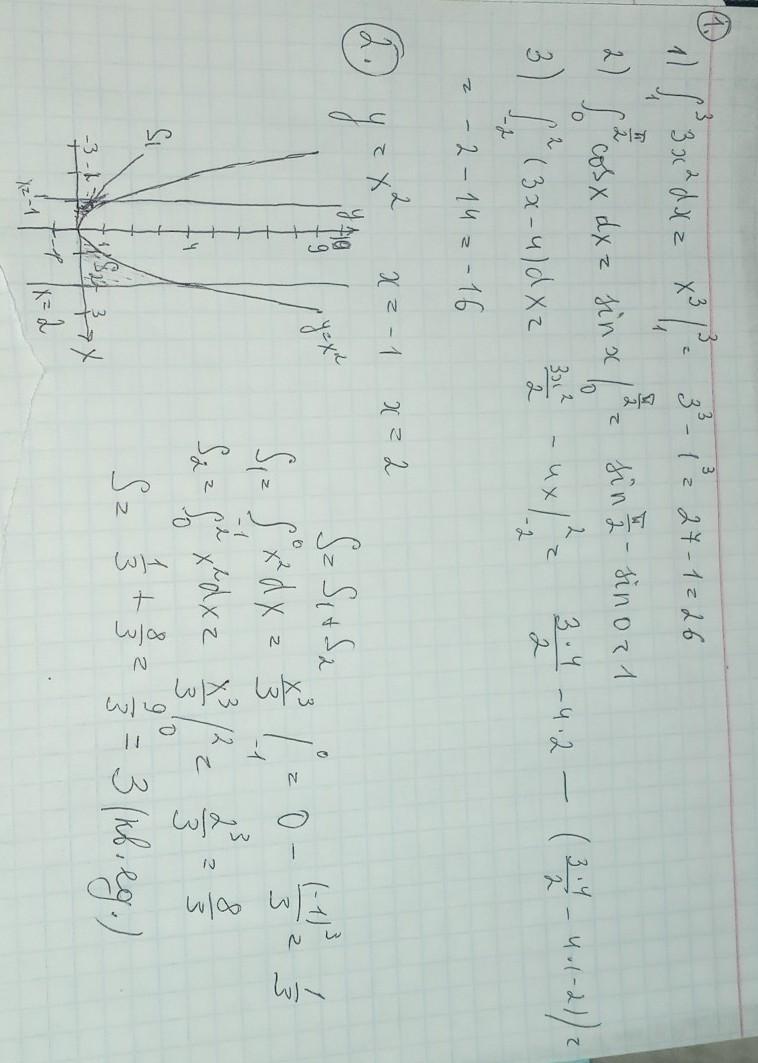 1.
1) ∫₁³ 3x²dx = x³|₁³ = 3³ - 1³ = 27 - 1 = 26
2) ∫₀^(π/2) cosx dx = sin x|₀^(π/2) = sin π/2 - sin 0 = 1
3) ∫₋₂² (3x-4)dx = 3x²/2 - 4x|₋₂² = 3·4/2 - 4·2 - (3·4/2 - 4·(-2)) =
= -2 - 14 = -16
2. y = x² x = -1 x = 2
S = S₁ + S₂
S₁ = ∫₋₁⁰ x²dx = x³/3|₋₁⁰ = 0 - (-1)³/3 = 1/3
S₂ = ∫₀² x²dx = x³/3|₀² = 2³/3 = 8/3
S = 1/3 + 8/3 = 9/3 = 3 (кв. ед.)
y
9
y = x²
4
S₁
S₂
-3
3
x
-1
x = -1
x = 2